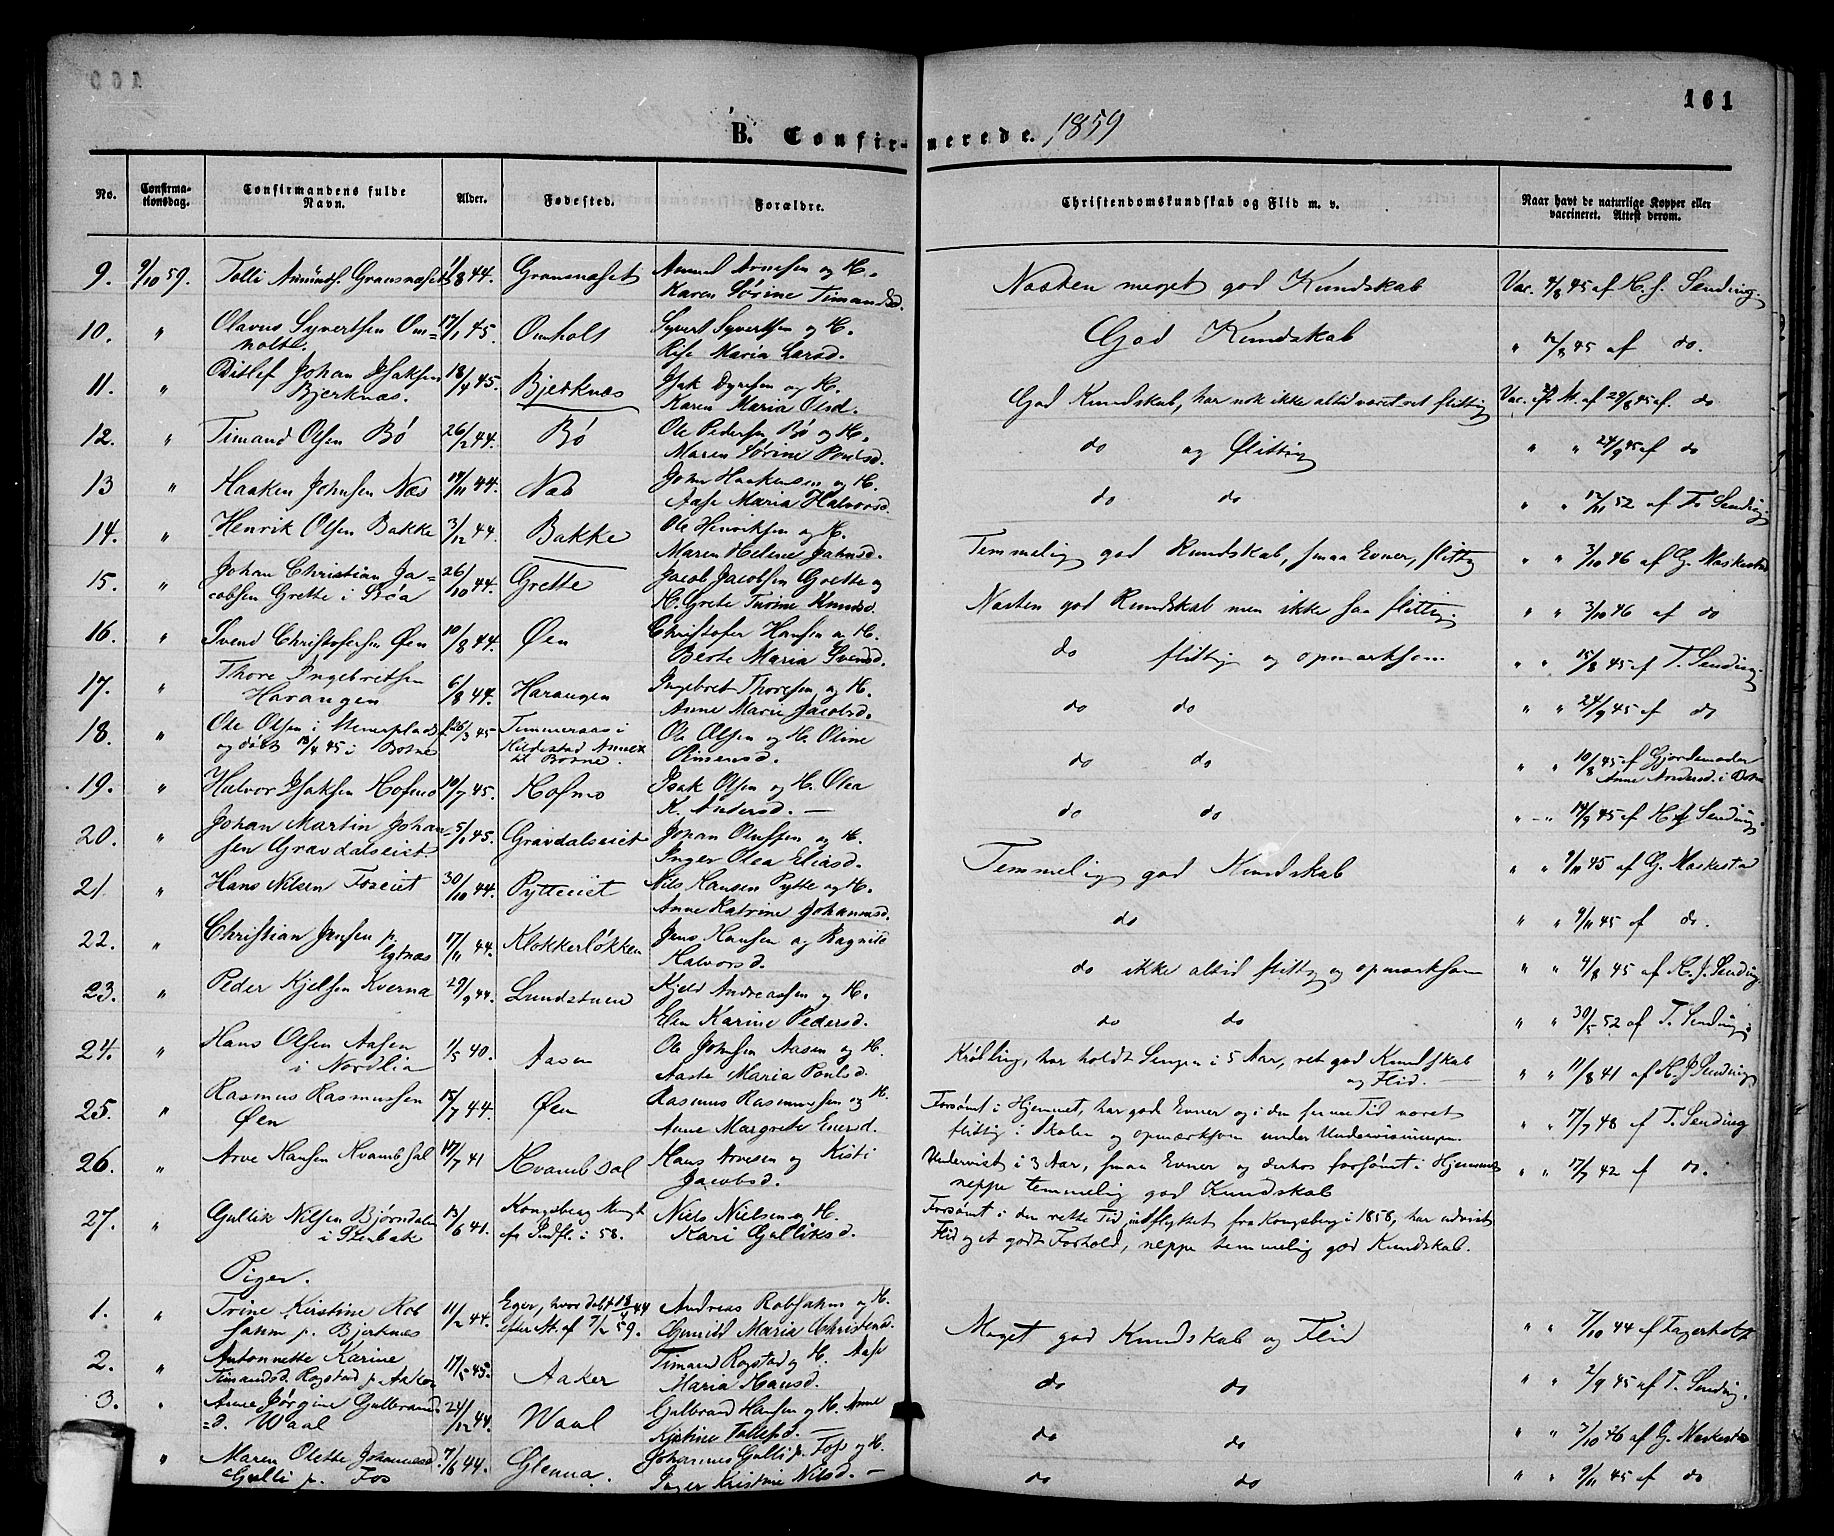 161
B. Confirmerede. 1859
No.
Confirmationsdag.
Confirmandens fulde Navn.
Alder.
Fødested.
Forældre.
Christendomskundskab og Flid m. v.
Naar havt de naturlige Kopper eller vaccineret. Attest derom.
9. 9/10 59. Tolli Amunds. Gransnæset 1/8 44. Gransnæset Amund Arnesen og H. Næsten meget god Kundskab Vac. 4/8 45 af H. J. Sending
Karen Sørine Timandsd.
10. " Olavus Syvertsen Om- 17/1 45. Omholt Syvert Syvertsen og H. God Kundskab " 12/8 45 af do.
holt. Maria Larsd.
11. " Ditlef Johan Isaksen 18/4 45. Bjerknæs Isak Dyresen og H. God Kundskab, har nok ikke altid været ret flittig Vac. af 29/8 45 af. do
Bjerknæs. Karen Maria Olsd.
12. " Timand Olsen Bø 26/2 44. Bø Ole Pedersen Bø og H. do og flittig " " 24/9 45 af do
Maren Sørine Poulsd.
13 " Haaken Johnsen Næs 14/11 44. Næs John Haakensen og H. do do " " 17/11 52 af T. Sending
Aase Maria Halvorsd.
14. " Henrik Olsen Bakke 3/12 44. Bakke Ole Henriksen og H. Temmelig god Kundskab, smaa Evner, flittig " " 3/10 46 af G. Maskestad
Maren Helene Jahnsd.
15. " Johan Christian Ja- 26/10 44. Grette Jacob Jacobsen Grette og Næsten god Kundskab men ikke saa flittig " " 3/10 46 af do
cobsen Grette i H. Grete Turine Knudsd.
16. " Svend Christofersen Øen 10/8 44. Øen Christofer Hansen og H. do flittig og opmærksom " " 15/8 45 af T. Sending
Berte Maria Svendsd.
17. " Thore Ingebretsen 6/8 44. Harangen Ingebret Thoresen og H. do do " " 24/9 45 af do
Harangen Anne Marie Jacobsd.
18. " Ole Olsen i 26/3 45 Timmeraas i Ole Olsen og H. Oline do do " " 10/8 45 af Gjordemoder
og døbt 13/4 45 i Botne Hildestad Annex til Botne. Anne Andersd. i Botne
19. " Halvor Isaksen Hofmo 10/7 45. Hofmo Isak Olsen og H. Olea do do " " 14/9 45 af H. J. Sending
K. Andersd.
20. " Johan Martin Johan- 5/1 45. Gravdalseiet Johan Olufsen og H. Temmelig god Kundskab " " 9/11 45 af G. Maskestad
sen Gravdalseiet. Inger Olea Eliasd.
21 " Hans Nilsen Foseiet 30/10 44. Pytteeiet Nils Hansen Pytte og H. do " " 9/11 45 af do.
Anne Katrine Johannsd.
22. " Christian Jensen p. 17/11 44. Klokkerløkken Jens Hansen og Ragnild do ikke altid flittig og opmærksom " " 4/8 45 af H. J. Sending
Halvorsd.
23. " Peder Kjelsen Kverna 29/9 44. Lundstuen Kjeld Andreassen og H. do do " " 30/5 52 af T. Sending
Elen Karine Pedersd.
24. " Hans Olsen Aasen 1/5 40. Aasen Ole Johnsen Aasen og H. Krøbling, har holdt Sengen i 5 Aar, ret god Kundskab " " 11/8 41 af H. J. Sending
i Nordlia Aaste Maria Poulsd. og Flid.
25. " Rasmus Rasmussen 15/7 44. Øen Rasmus Rasmussen og H. Forsømt i Hjemmet, har gode Evner og i den senere Tid været " " 17/7 48 af T. Sending
Øen Anne Margrete Enersd. flittig i Skolen og opmærksom under Undervisningen.
26. " Arve Hansen Kvambsal 17/7 41 Kvambsal Hans Arvesen og Kisti Undervist i 3 Aar, smaa Evner og derhos forsømt i Hjemmet " " 17/7 42 af do.
Jacobsd. neppe temmelig god Kundskab
27. " Gullik Nilsen Bjørndalen 13/6 41. Kongsberg Niels Nielsen og H. Forsømt i den rette Tid, indflyttet fra Kongsberg i 1858, har udvist
i Stenbak i 58. Kari Gulliksd. Flid og et godt Forhold, neppe temmelig god Kundskab.
Piger.
1. " Trine Kirstine Rob 11/2 44. Eger, hvor døbt 44 Andreas Robsahm og H. Meget god Kundskab og Flid " " 7/10 44 af Fagerholt
sahm p. Bjerknæs efter At. af 7/2 59. Gunild Maria Christensd.
2. " Antonnette Karine 17/5 45. Aaker Timand Rogstad og H. Aase do do " " 2/9 45 af T. Sending.
Timandsd. Rogstad p. Aaker Maria Hansd.
3. " Anne Jørgine Gulbrands 24/12 44. Waal Gulbrand Hansen og H. Anne do do " " 3/10 46 af G. Maskestad
=d. Waal Kjistine Tollefsd.
" Maren Olette Johannesd. 7/6 44. Glenna. Johannes Gulli p. Fos og H. do do " " 9/11 45 af do
Gulli p. Fos Inger Kristine Nilsd.